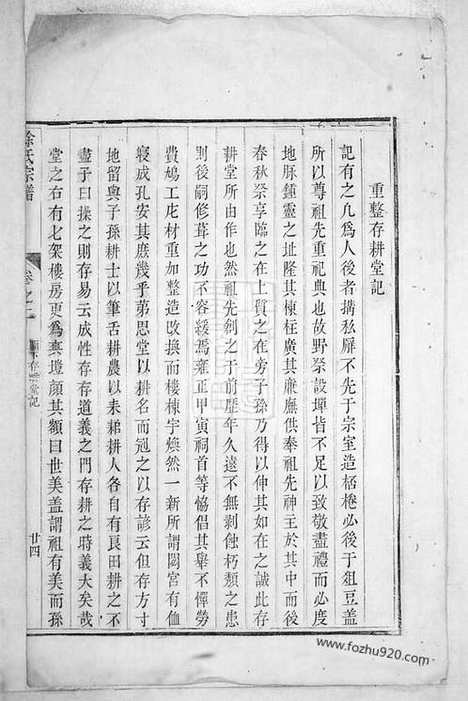 重整存耕堂記
記有之凡為人後者搆私屝不先于宗室造栢棬必後于俎豆蓋
所以尊祖先重祀典也故野祭設墠皆不足以致敬盡禮而必度
地脉鍾靈之址隆其棟柱廣其蔴廡供奉祖先神主於其中而後
春秋祭享臨之在上質之在旁子孫乃得以伸其如在之誠此存
耕堂所由作也然祖先剏之于前歷年久遠不無剥蝕朽類之患
則後嗣修葺之功不容緩焉雍正甲寅祠首等恊倡其舉不憚勞
費鳩工庀材重加整造改換而樓棟宇煥然一新所謂閟宮有侐
寢成孔安其庶幾乎第思堂以耕名而冠之以存諺云但存方寸
地留與子孫耕士以筆舌耕農以耒耜耕人各自有良田耕之不
盡子曰操之則存易云成性存存道義之門存耕之時義大矣哉
堂之右有七架樓房更為爽塏顏其額曰世美蓋謂祖有美而孫
徐氏宗譜
卷之一
存 堂記
廿四
www.fozhu920.com